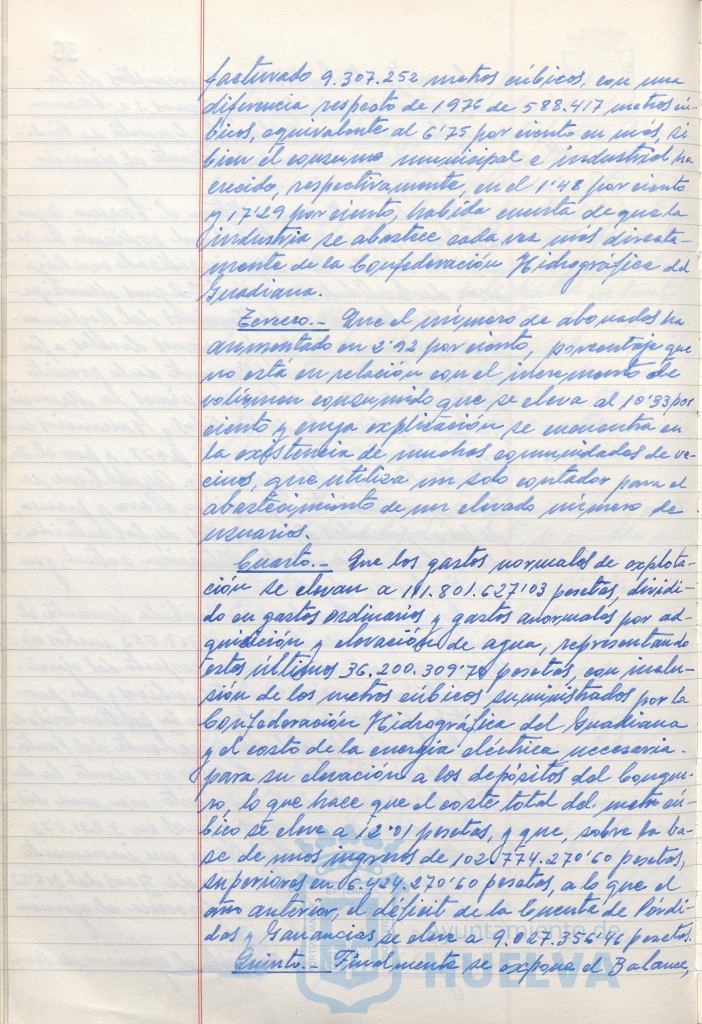 facturado 9.307.252 metros cúbicos, con una
diferencia respecto de 1976 de 588.417 metros cú-
bicos, equivalente al 6'75 por ciento en más, si
bien el consumo municipal e industrial ha
crecido, respectivamente, en el 1'48 por ciento
y 17'29 por ciento, habida cuenta de que la
industria se abastece cada vez más directa-
mente de la Confederación Hidrográfica del
Guadiana.
Tercero.- Que el número de abonados ha
aumentado en 2'92 por ciento, porcentaje que
no está en relación con el incremento de
volumen consumido que se eleva al 10'33 por
ciento y cuya explicación se encuentra en
la existencia de muchas comunidades de ve-
cinos, que utiliza un solo contador para el
abastecimiento de un elevado número de
usuarios.
Cuarto.- Que los gastos normales de explota-
ción se elevan a 111.801.627'03 pesetas, dividi-
do en gastos ordinarios y gastos anormales por ad-
quisición y elevación de agua, representando
estos últimos 36.200.309'70 pesetas, con inclu-
sión de los metros cúbicos suministrados por la
Confederación Hidrográfica del Guadiana
y el costo de la energía eléctrica necesaria
para su elevación a los depósitos del Conque-
ro, lo que hace que el coste total del metro cú-
bico se eleve a 12'01 pesetas, y que, sobre la ba-
se de unos ingresos de 102.774.270'60 pesetas,
superiores en 6.424.270'60 pesetas, a lo que el
año anterior, el déficit de la Cuenta de Pérdi-
das y Ganancias se eleve a 9.027.356'46 pesetas.
Quinto.- Finalmente se expone el Balance,
Ayuntamiento de
HUELVA